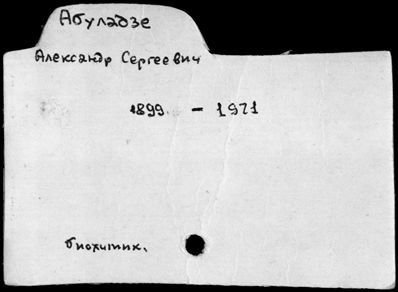 Абуладзе
Александр Сергеевич
1899 - 1971
биохимик.